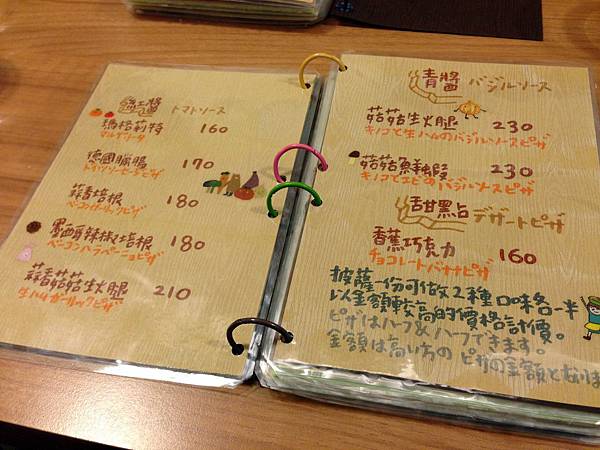 紅醬 トマトソース
瑪格莉特 160
マルゲリータ
德國臘腸 170
ドイツソーセージピザ
蒜香培根 180
ベーコンガーリックピザ
墨西哥辣椒培根 180
ベーコンハラペーニョピザ
蒜香菇菇生火腿 210
生ハムガーリックピザ
青醬 バジルソース
菇菇生火腿 230
キノコと生ハムのバジルソースピザ
菇菇鮮蝦 230
キノコとエビのバジルソースピザ
甜點 デザートピザ
香蕉巧克力 160
チョコレートバナナピザ
披薩一份可做2種口味各一半
以金額較高的價格計價。
ピザはハーフ&ハーフできます。
金額は高い方のピザの金額と